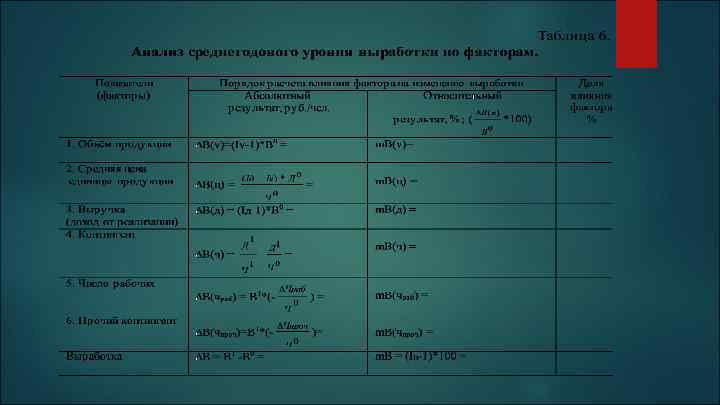 Таблица 6.
Анализ среднегодового уровня выработки по факторам.
Показатели (факторы)
Порядок расчета влияния фактора на изменение выработки
Доля влияния фактора %
Абсолютный результат, руб./чел.
Относительный результат, % ; ( ΔВ(n) / B⁰ *100)
1. Объём продукции
ΔВ(v)=(Iv-1)*B⁰ =
mВ(v)=
2. Средняя цена единицы продукции
ΔВ(ц) = (Iд Iv) * Д⁰ / Ч⁰ =
mВ(ц) =
3. Выручка (доход от реализации)
ΔВ(д) = (Iд 1)*B⁰ =
mВ(д) =
4. Контингент
ΔВ(ч) = Д¹ / Ч¹ Д¹ / Ч⁰ =
mВ(ч) =
5. Число рабочих
ΔВ(чраб) = B¹*(- ΔЧраб / Ч⁰ ) =
mВ(чраб) =
6. Прочий контингент
ΔВ(чпроч)=B¹*(- ΔЧпроч / Ч⁰ )=
mВ(чпроч) =
Выработка
ΔВ = B¹ -B⁰ =
mВ = (Iв-1)*100 =